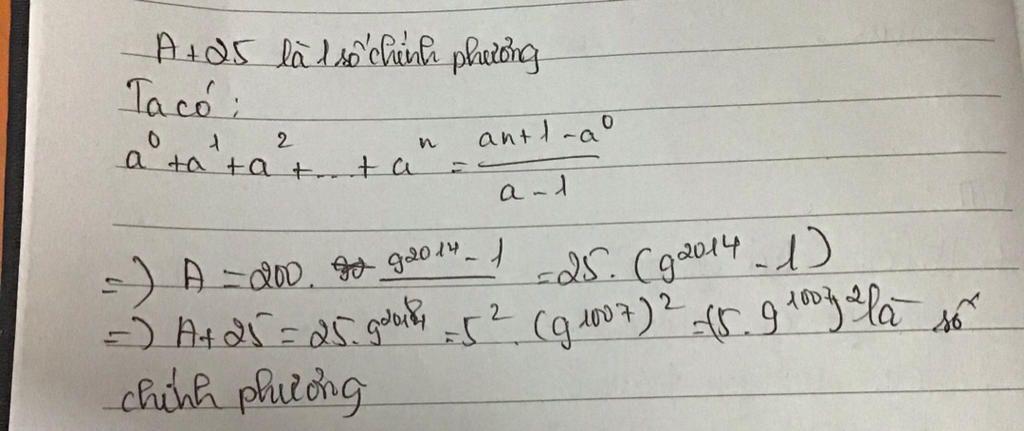 A+25 là 1 số chính phương
Ta có:
a⁰ + a¹ + a² + ... + aⁿ = (an+1 - a⁰) / (a - 1)
=) A = 200. (9²⁰¹⁴ - 1) / = 25. (9²⁰¹⁴ - 1)
=) A + 25 = 25. 9²⁰¹⁴ = 5². (9¹⁰⁰⁷)² = (5. 9¹⁰⁰⁷)² là số
chính phương